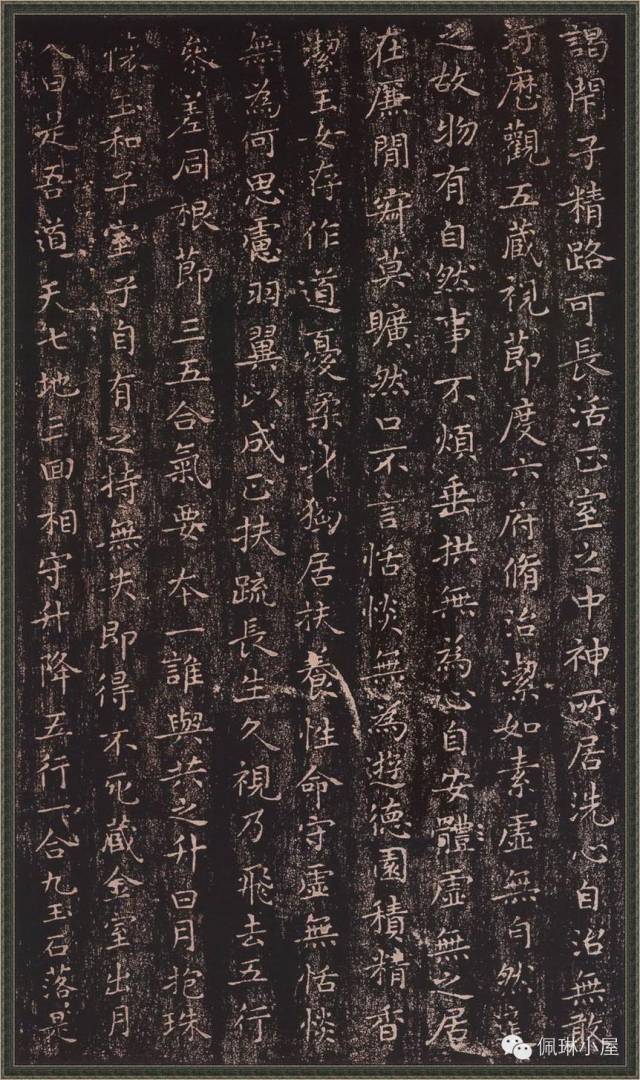 謁閇子精路可長活正室之中神所居洗心自治無敢
汙歷觀五藏視節度六府脩治潔如素虛無自然道
之故物有自然事不煩垂拱無為心自安體虛無之居
在廉間寂莫曠然口不言恬惔無為遊德園積精香
潔玉女存作道憂柔身獨居扶養性命守虛無恬惔
無為何思慮羽翼以成正扶疏長生久視乃飛去五行
參差同根節三五合氣要本一誰與共之升日月抱珠
懷玉和子室子自有之持無失即得不死藏金室出月
入日是吾道天七地三回相守升降五行一合九玉石落〻是
佩琳小屋